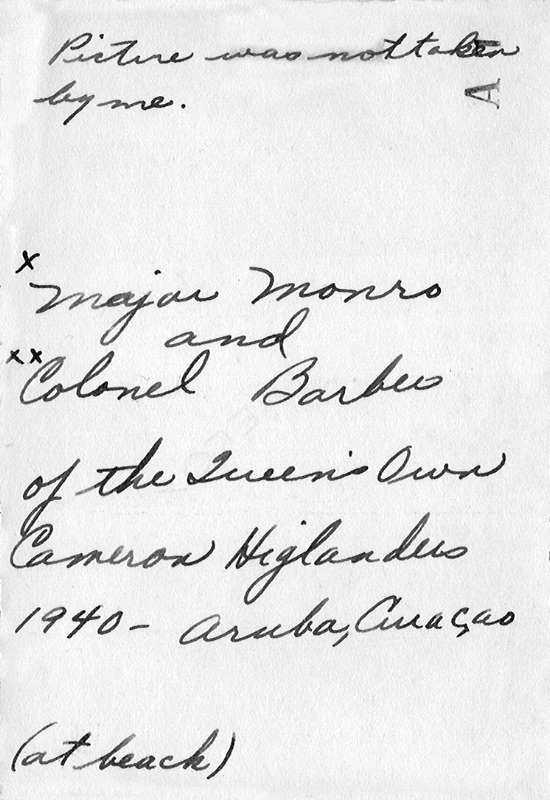 Picture was not taken
by me.
A
x
Major Monro
and
xx
Colonel Barber
of the Queen's Own
Cameron Higlanders
1940 - Aruba, Curaçao
(at beach)